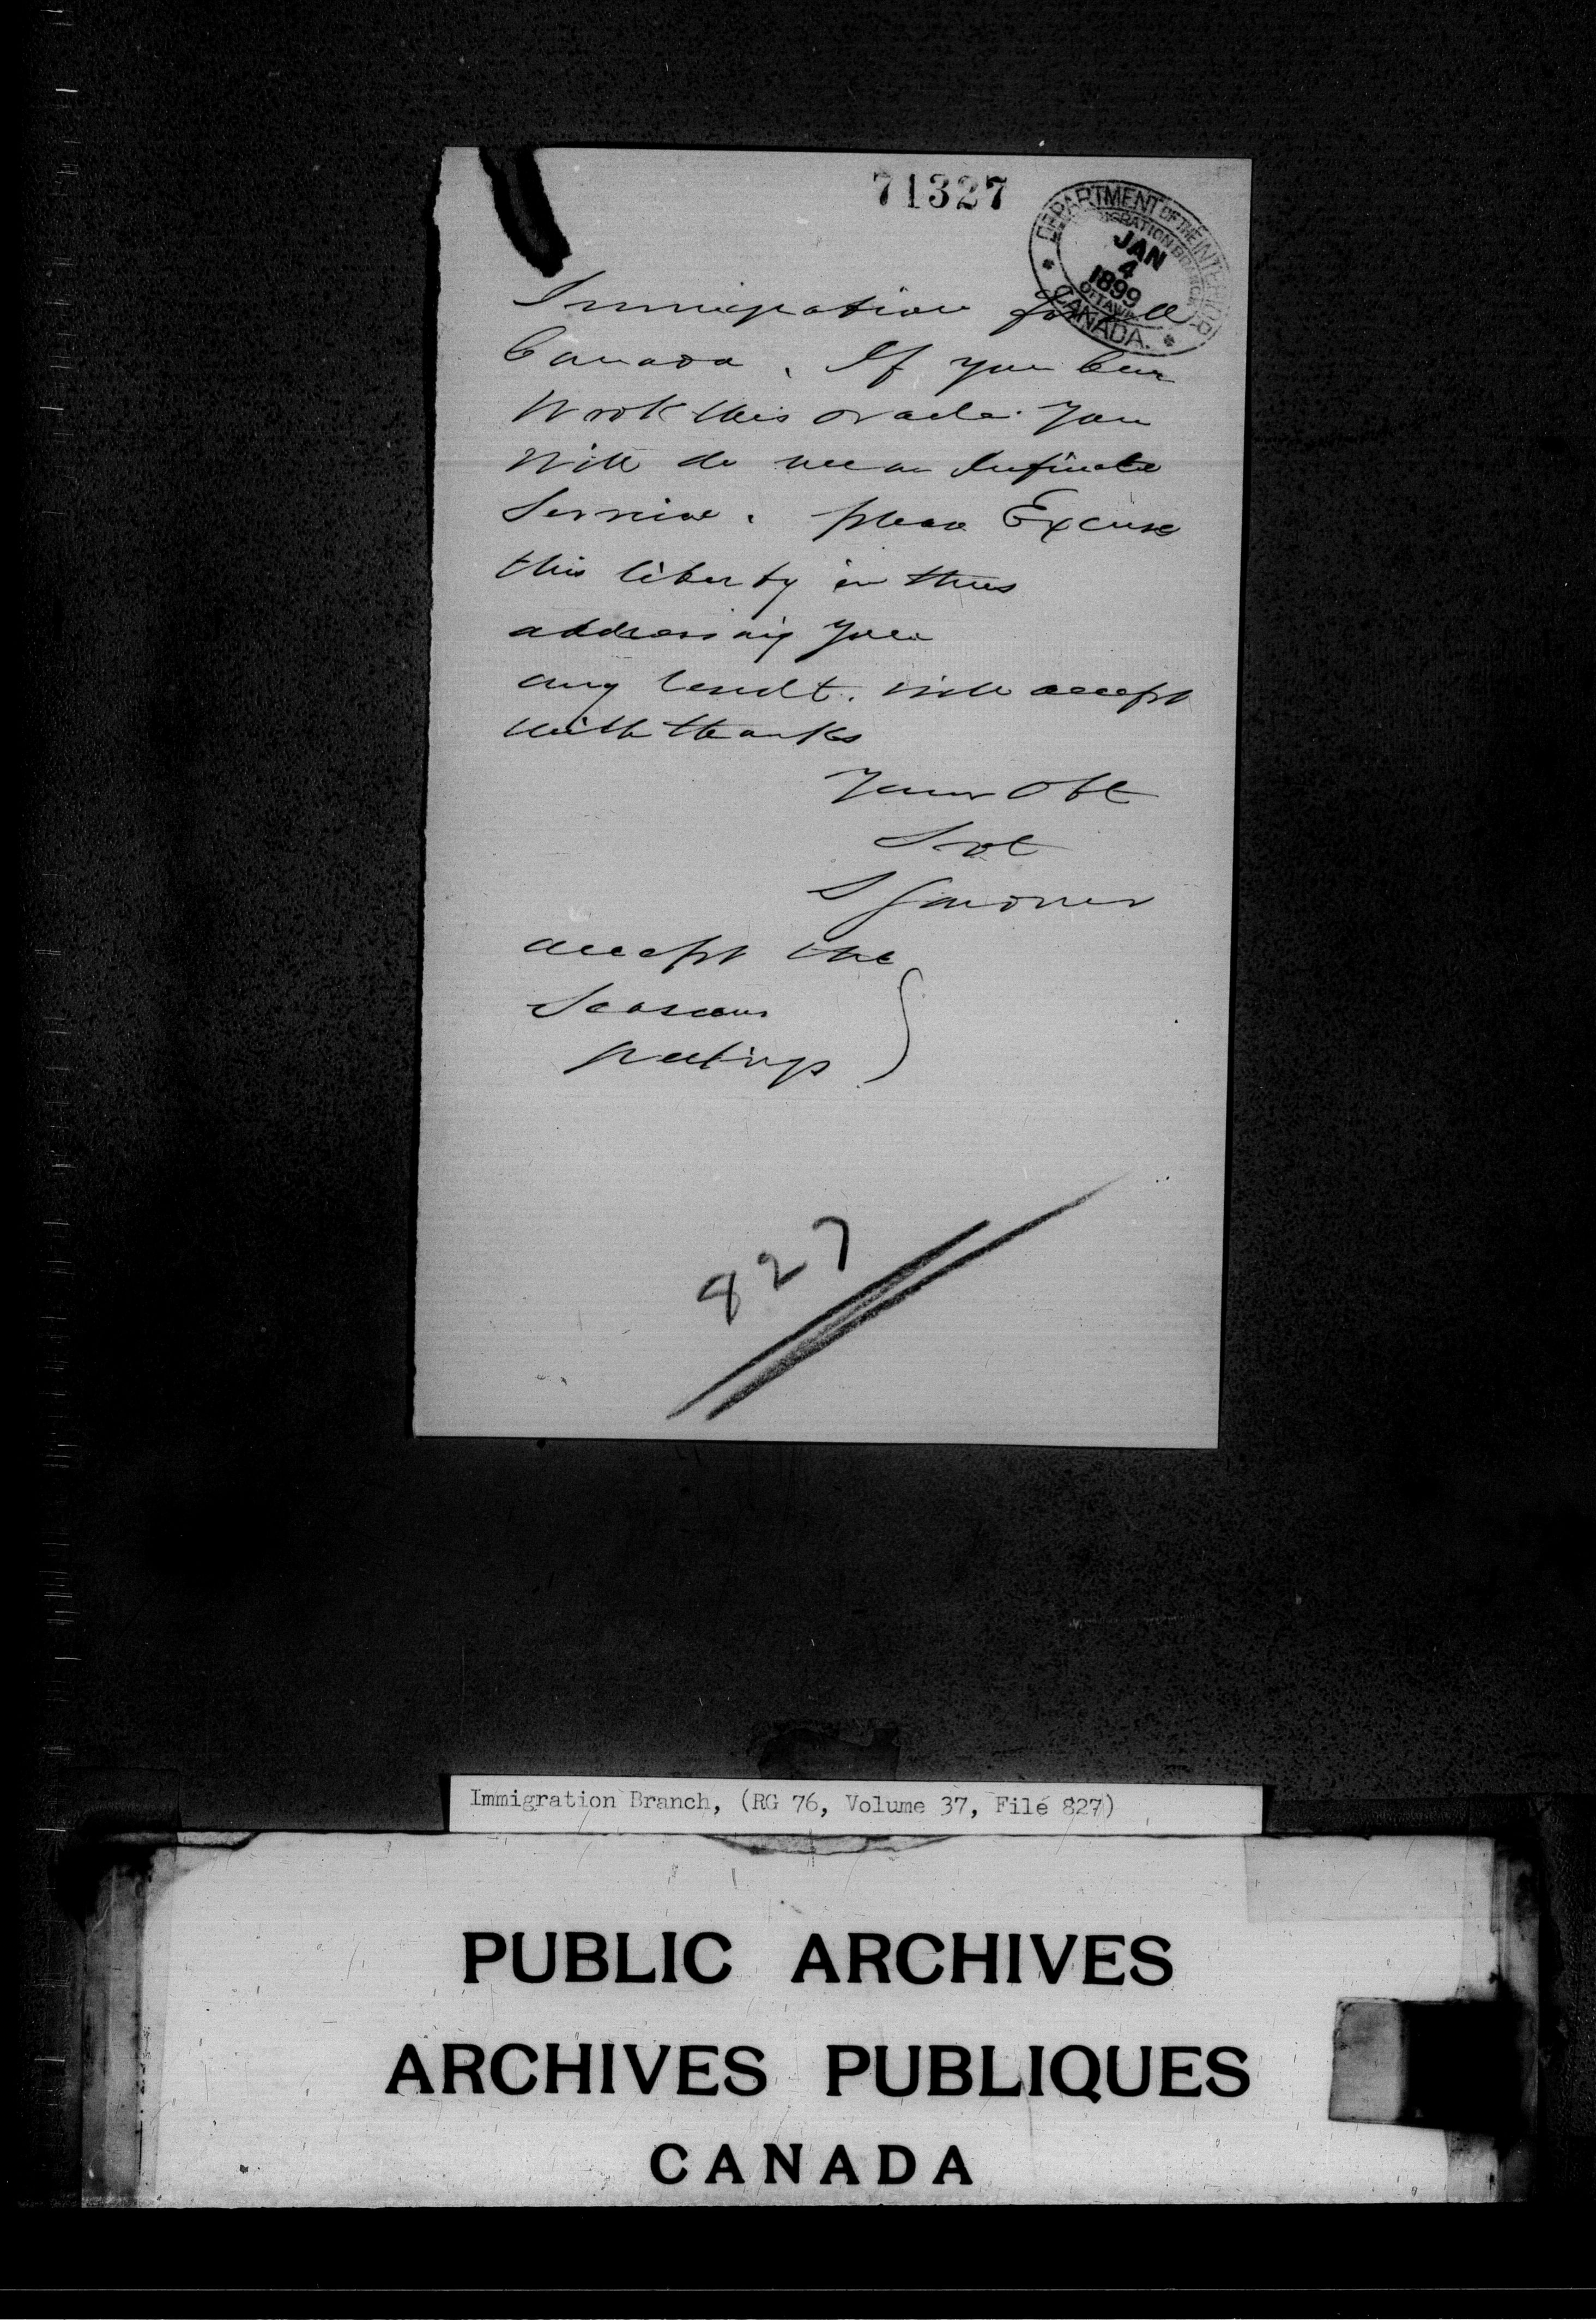 71327
DEPARTMENT OF THE INTERIOR
IMMIGRATION BRANCH
JAN
4
1899
OTTAWA
CANADA.
Immigration for all
Canada. If you can
work this oracle you
will do me an Infinate
Service. please Excuse
this liberty in thus
addressing you
any result. will accept
with thanks
Your Obt
Svt
S Gardner
accept the
Seasons
greetings
827
Immigration Branch, (RG 76, Volume 37, File 827)
PUBLIC ARCHIVES
ARCHIVES PUBLIQUES
CANADA